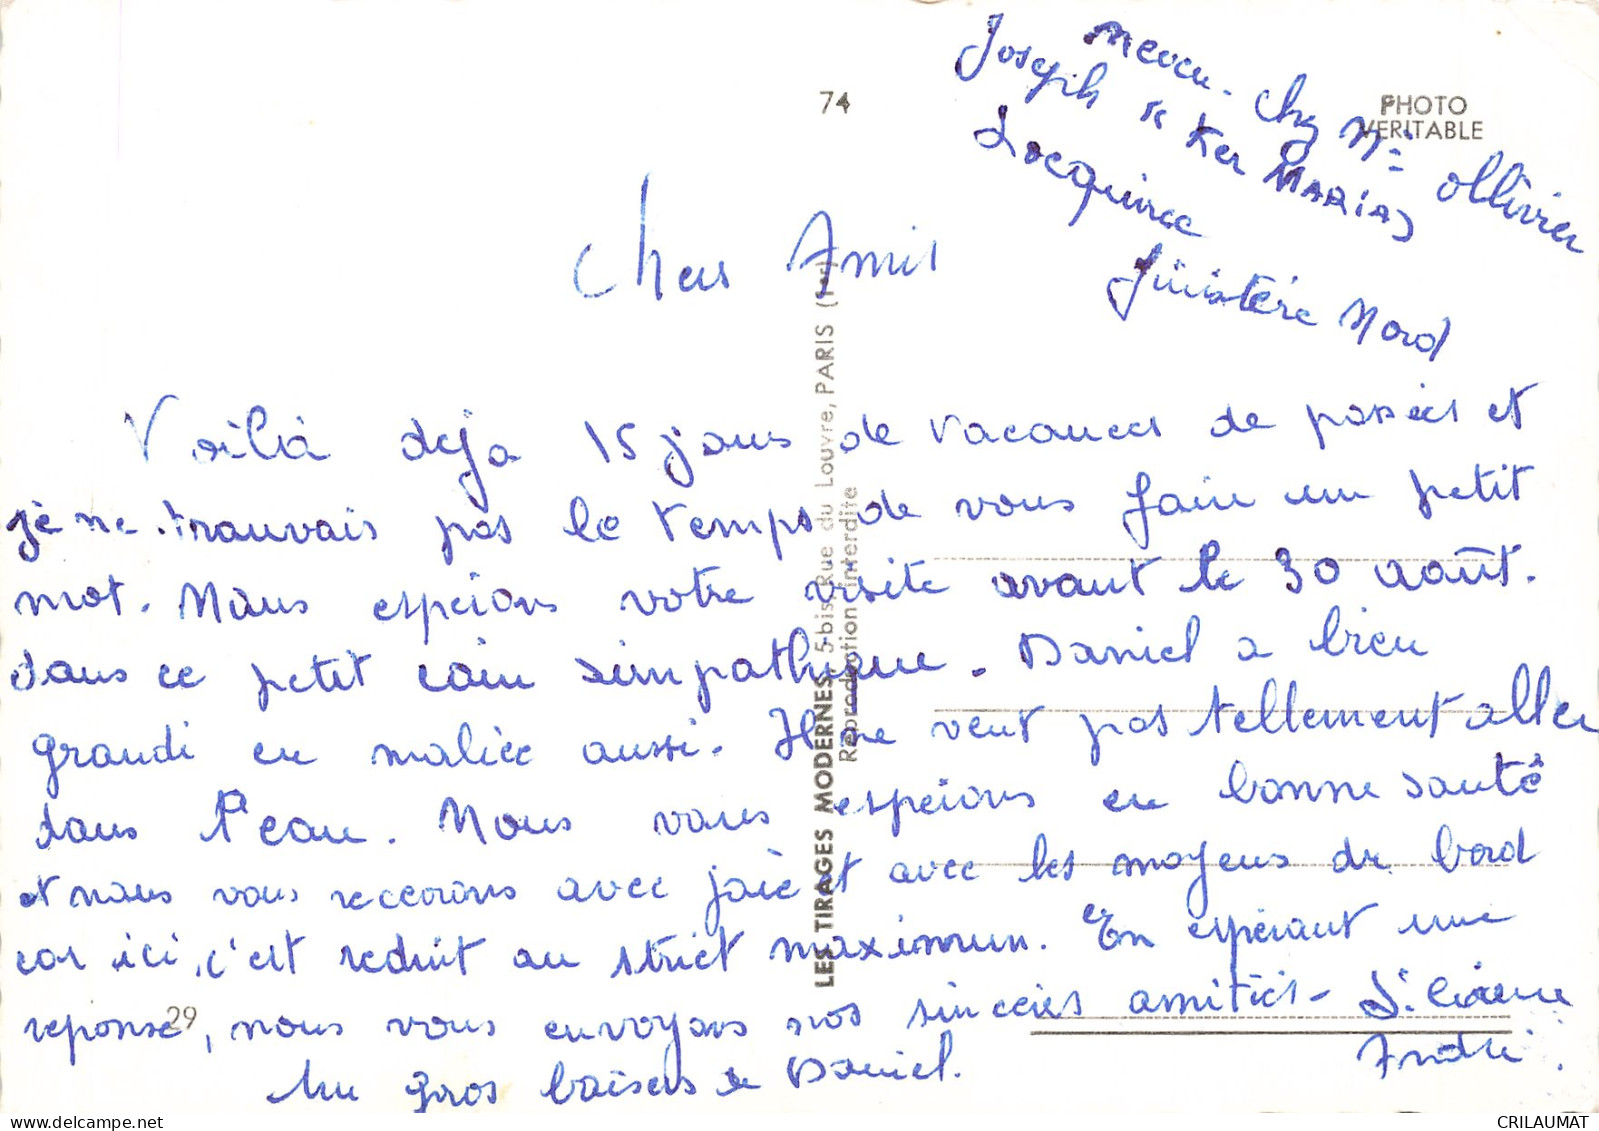 chez Mr Ollivier
Joseph "Ker MARIA"
Locquirec
Finistère Nord
74
PHOTO
VERITABLE
Chers Amis
Voilà déjà 15 jours de vacances de passées et
je ne trouvais pas le temps de vous faire un petit
mot. Nous esperons votre visite avant le 30 août.
dans ce petit coin simpathique. Daniel a bien
grandi en malice aussi. Il ne veut pas tellement aller
dans l'eau. Nous vous esperons en bonne santé
et nous vous recevrons avec joie et avec les moyens du bord
car ici, c'est reduit au strict maximum. En espérant une
reponse, nous vous envoyons nos sincères amitiés - Liliane
André.
Un gros baisers de Daniel.
29
LES TIRAGES MODERNES, 5 bis Rue du Louvre, PARIS (1er)
Reproduction interdite
CRILAUMAT